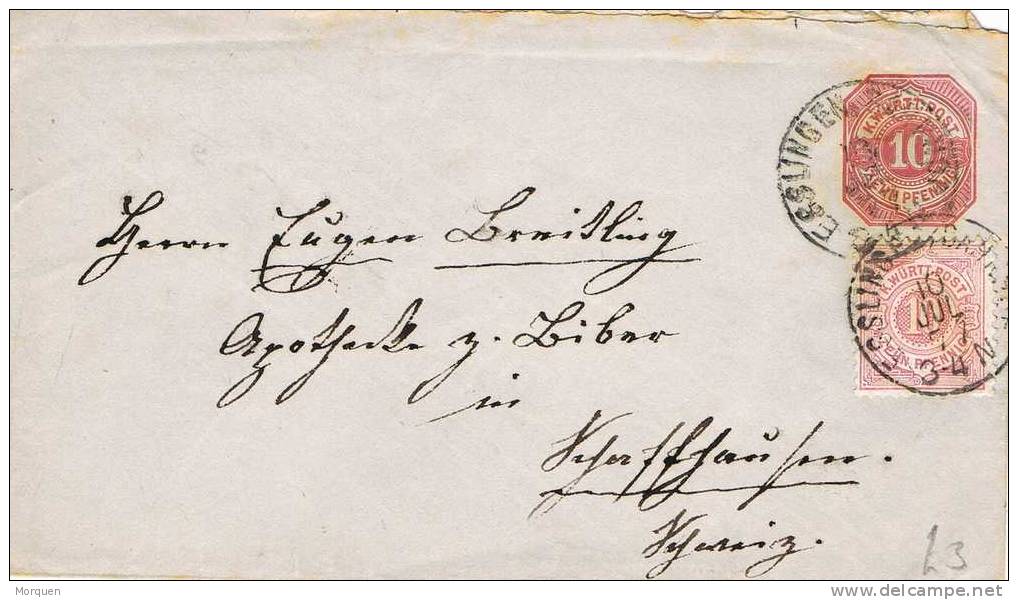 K. WÜRTT. POST
10
ZEHN PFENNIG
ESSLINGEN
K. WÜRTT. POST
ZEHN PFENNIG
ESSLINGEN
10
JUL
3-4 N
Herrn Eugen Breitling
Apotheke z. Biber
in
Schaffhausen.
Schweiz.
L3
Morquen
www.delcampe.net